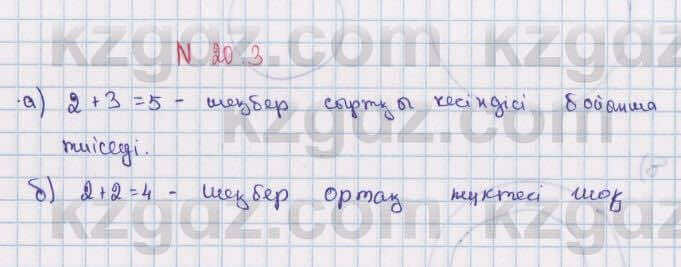 № 20.3
а) 2+3=5 - шеңбер сыртқы кесіндісі бойынша
тиіседі.
б) 2+2=4 - шеңбер ортақ нүктесі жоқ
kzgdz.com kzgdz.com
kzgdz.com
kzgdz.com kzgdz.com